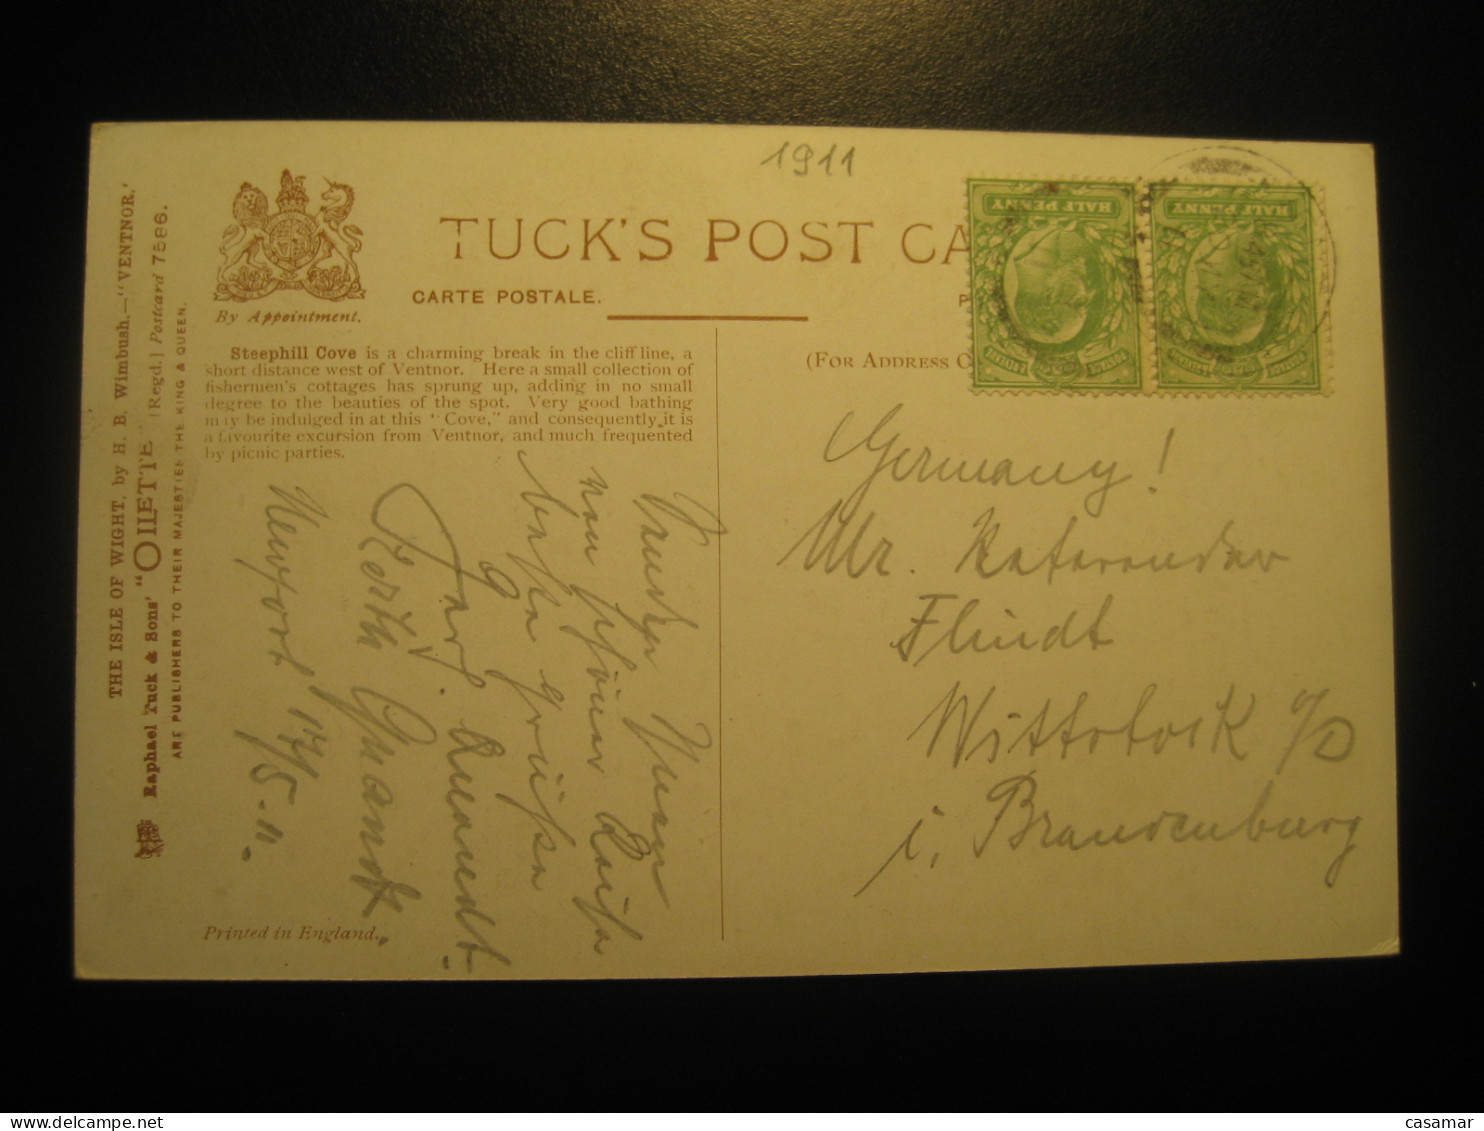 1911
By Appointment.
TUCK'S POST CA
CARTE POSTALE.
(FOR ADDRESS O
HALF PENNY
HALF PENNY
THE ISLE OF WIGHT, by H. B. Wimbush.—"VENTNOR."
Raphael Tuck & Sons' "OILETTE" [Regd.] Postcard 7586.
ARE PUBLISHERS TO THEIR MAJESTIES THE KING & QUEEN.
Steephill Cove is a charming break in the cliff line, a
short distance west of Ventnor. Here a small collection of
fishermen's cottages has sprung up, adding in no small
degree to the beauties of the spot. Very good bathing
may be indulged in at this "Cove," and consequently it is
a favourite excursion from Ventnor, and much frequented
by picnic parties.
von schöner Reise
beste Grüße
Newport 17/5. 11.
Printed in England.
Germany!
Mr.
Flindt
Wittstock a/D
i. Brandenburg
casamar